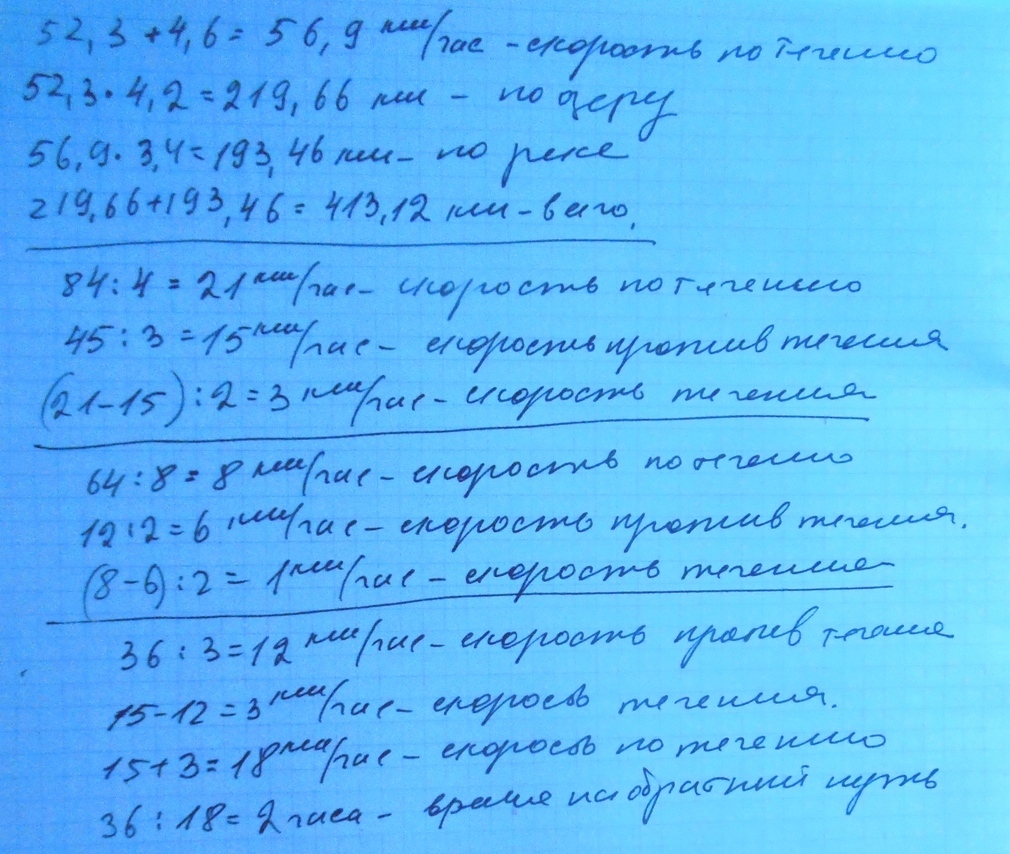 52,3+4,6=56,9 км/час - скорость по течению
52,3·4,2=219,66 км - по озеру
56,9·3,4=193,46 км - по реке
219,66+193,46=413,12 км - всего.
84:4=21 км/час - скорость по течению
45:3=15 км/час - скорость против течения
(21-15):2=3 км/час - скорость течения
64:8=8 км/час - скорость по течению
12:2=6 км/час - скорость против течения.
(8-6):2=1 км/час - скорость течения
36:3=12 км/час - скорость против течения
15-12=3 км/час - скорость течения.
15+3=18 км/час - скорость по течению
36:18=2 часа - время на обратный путь